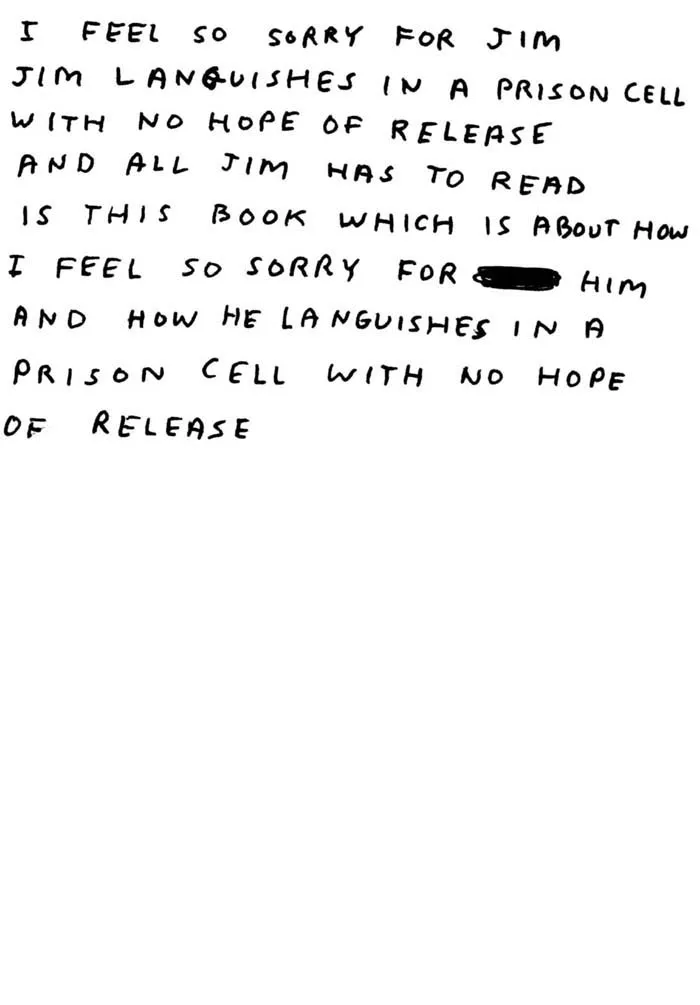 I FEEL SO SORRY FOR JIM
JIM LANGUISHES IN A PRISON CELL
WITH NO HOPE OF RELEASE
AND ALL JIM HAS TO READ
IS THIS BOOK WHICH IS ABOUT HOW
I FEEL SO SORRY FOR HIM
AND HOW HE LANGUISHES IN A
PRISON CELL WITH NO HOPE
OF RELEASE